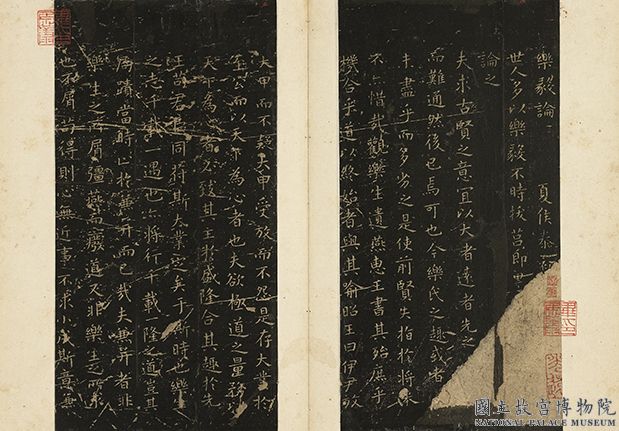 樂毅論 夏侯泰
世人多以樂毅不時拔莒即
論之
夫求古賢之意宜以大者遠者先之
而難通然後已焉可也今樂氏之趣或者
未盡乎而多劣之是使前賢失指於將來
不亦惜哉觀樂生遺燕惠王書其殆庶乎
機合乎道以終始者與其喻昭王曰伊尹放
大甲而不疑大甲受放而不怨是存大業於
至公而以天下為心者也夫欲極道之量務以
天下為心者必致其主於盛隆合其趣於先
王苟君臣同符斯大業定矣于斯時也樂生
之志千載一遇也亦將行千載一隆之道豈其
局蹟當時止於兼并而已哉夫兼并者非
樂生之所屑彊燕而廢道又非樂生之所求
也不屑苟得則心無近事不求小成斯意兼
國立故宮博物院
NATIONAL PALACE MUSEUM